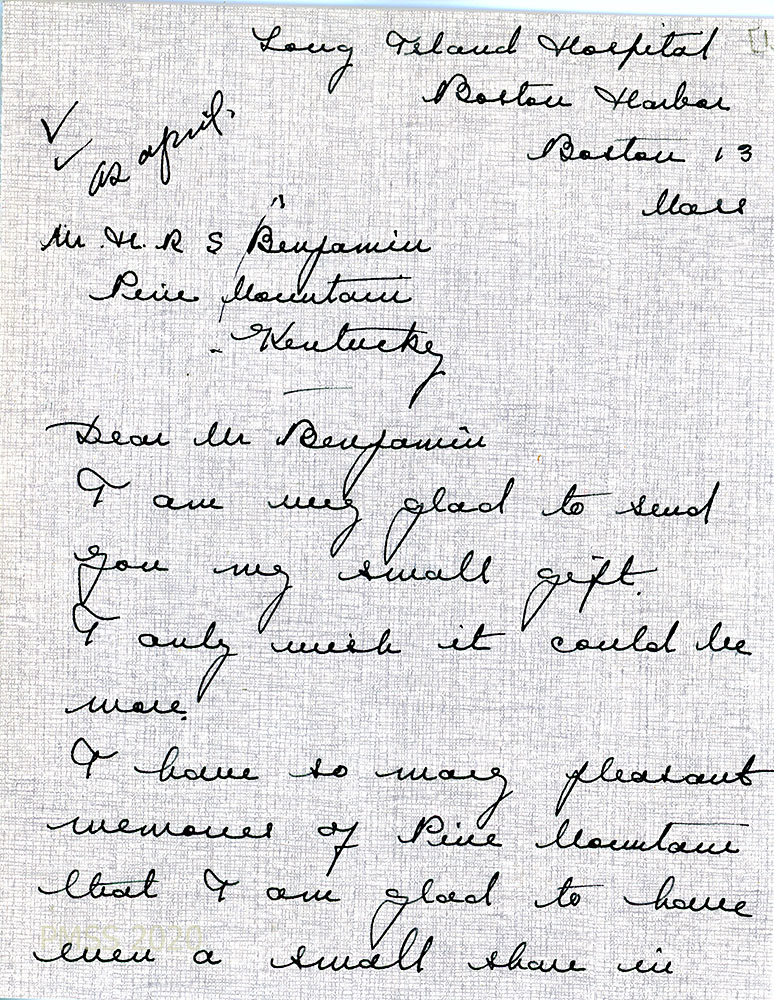 Long Island Hospital
Boston Harbor
Boston 13
Mass
as april.
Mr. H. R S Benjamin
Pine Mountain
Kentucky
Dear Mr Benjamin
I am very glad to send
you my small gift.
I only wish it could be
more.
I have so many pleasant
memories of Pine Mountain
that I am glad to have
even a small share in
PMSS 2020